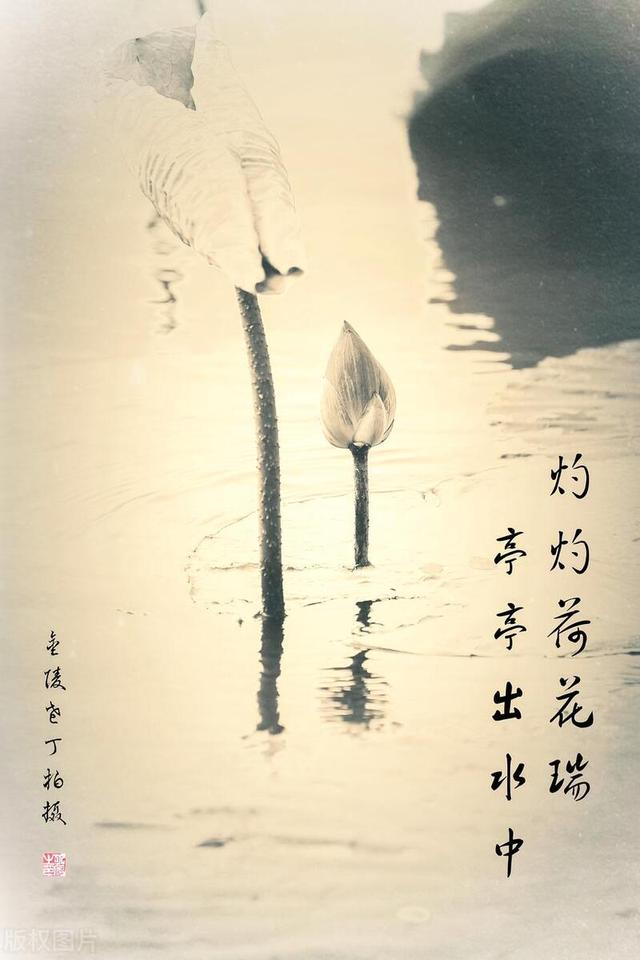 灼灼荷花瑞
亭亭出水中
金陵老丁拍摄
版权图片